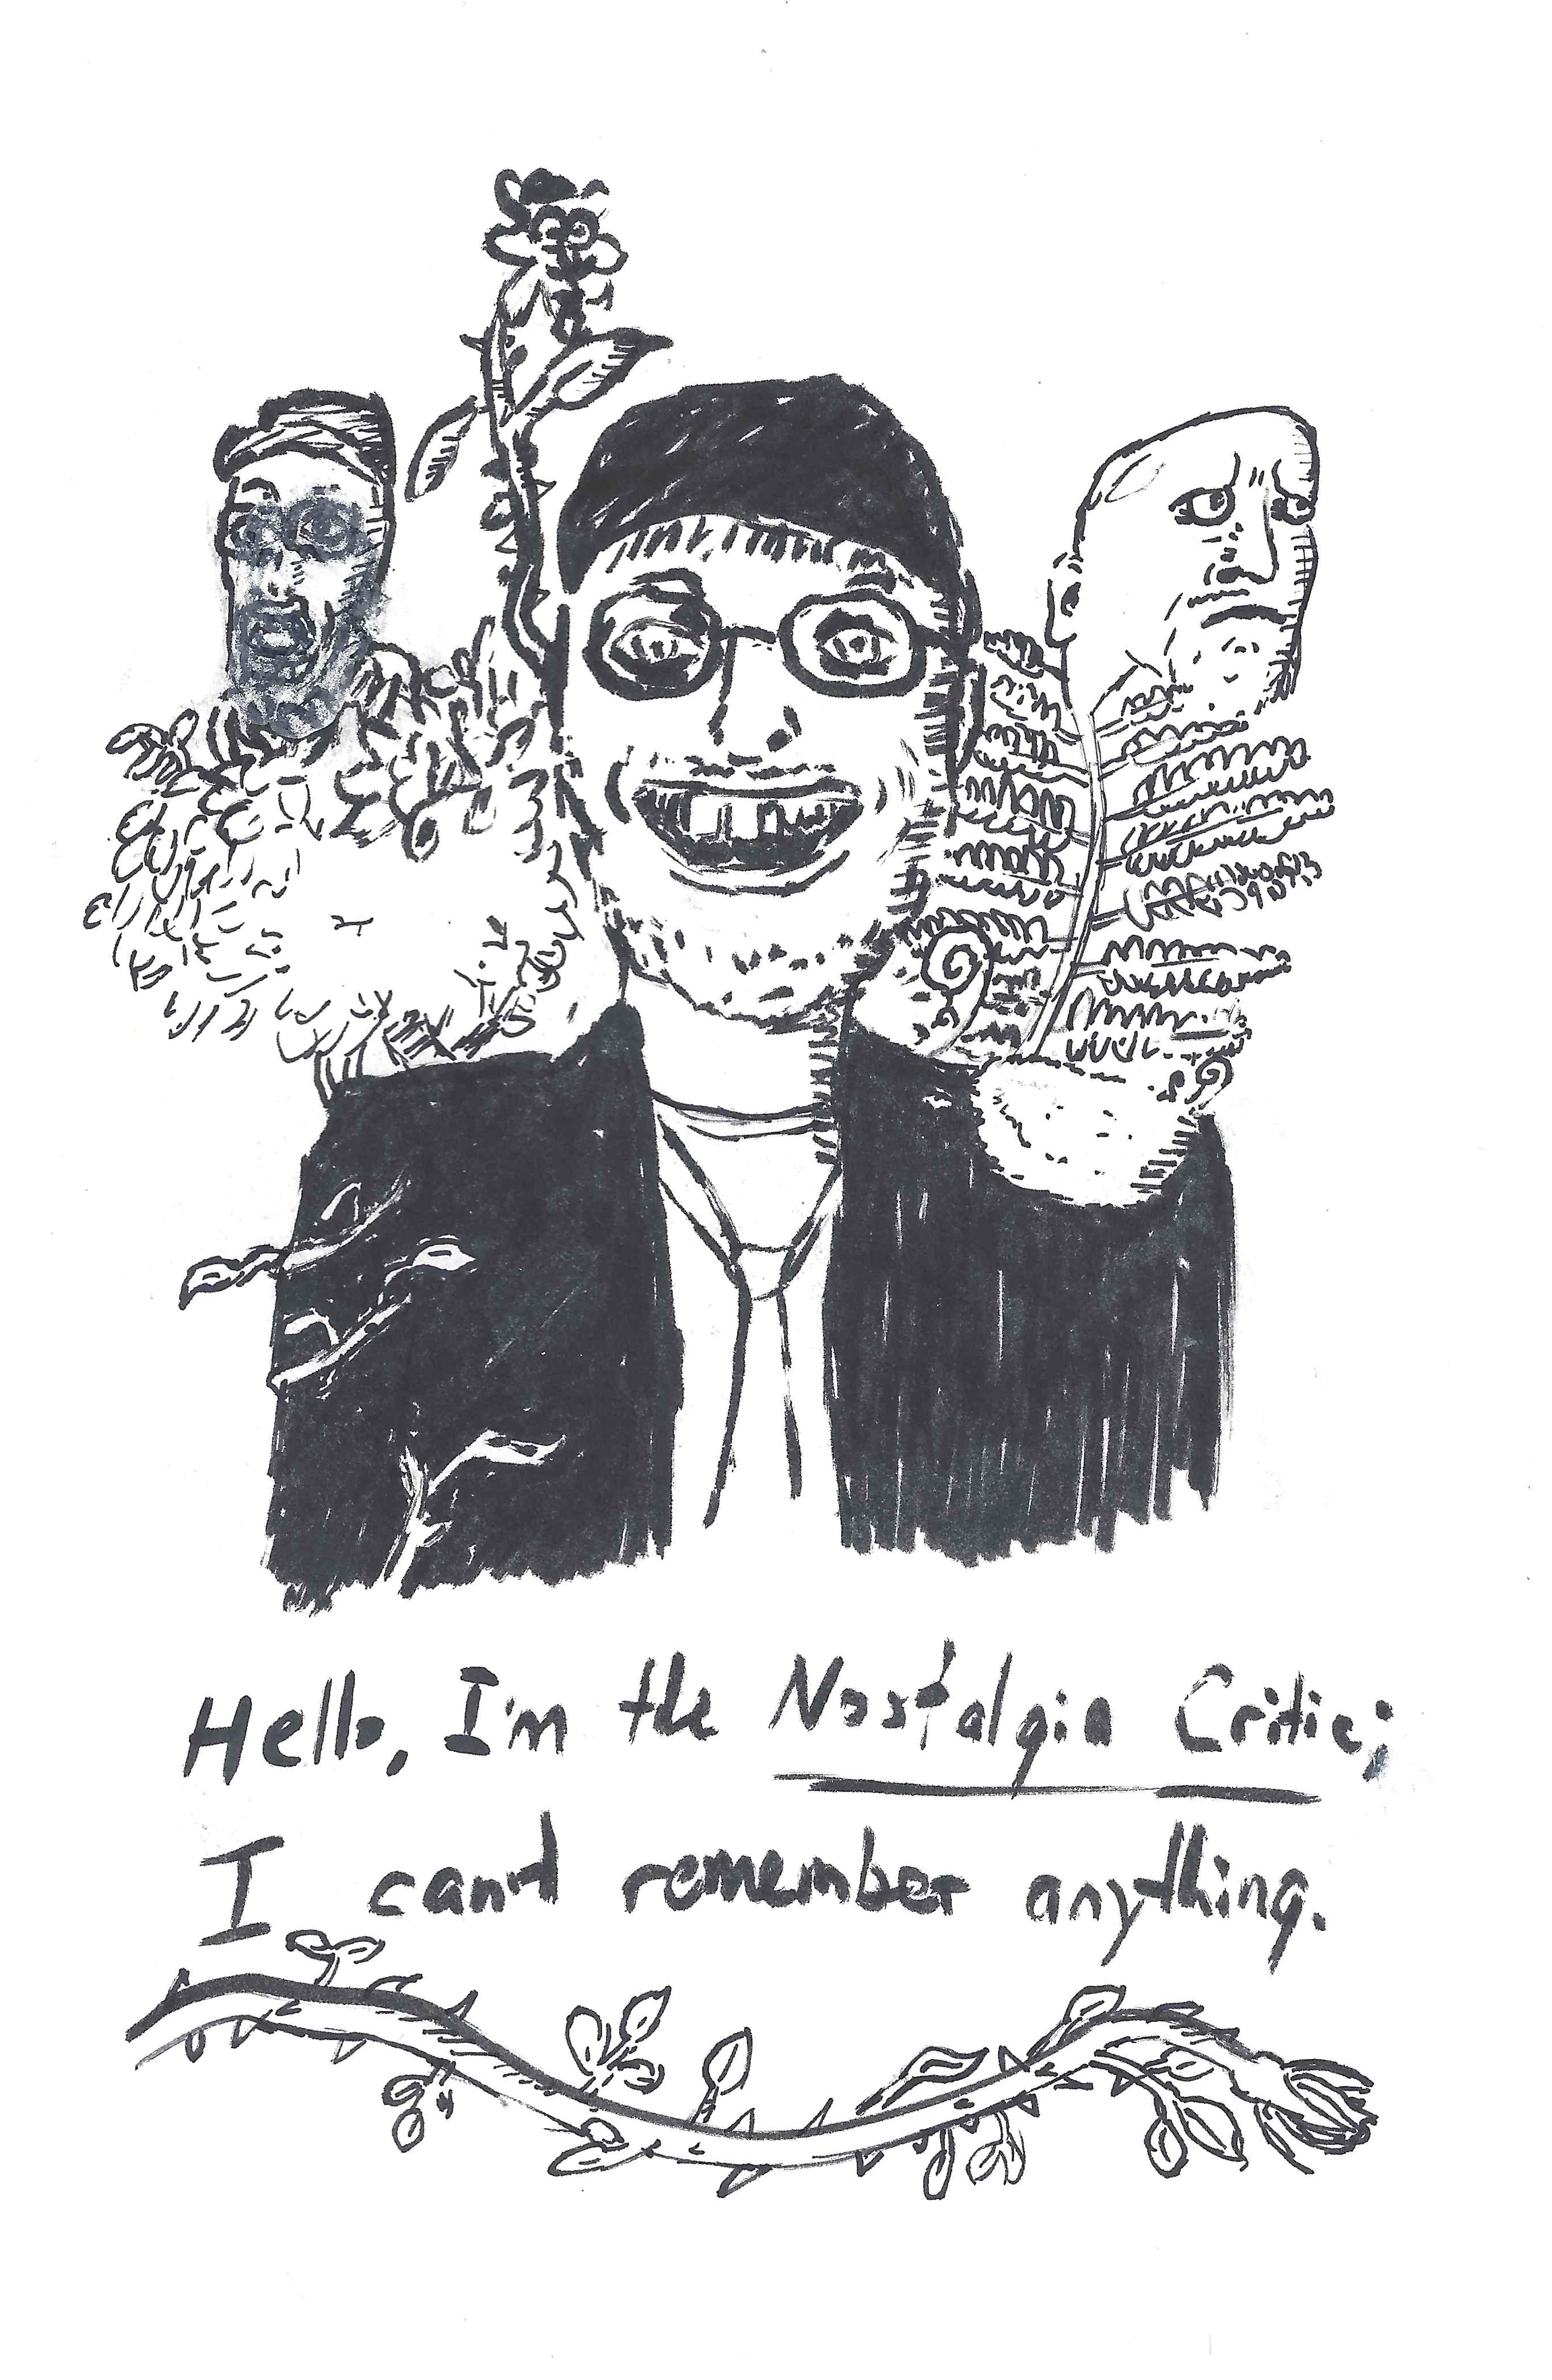 Hello, I'm the Nostalgia Critic;
I can't remember anything.